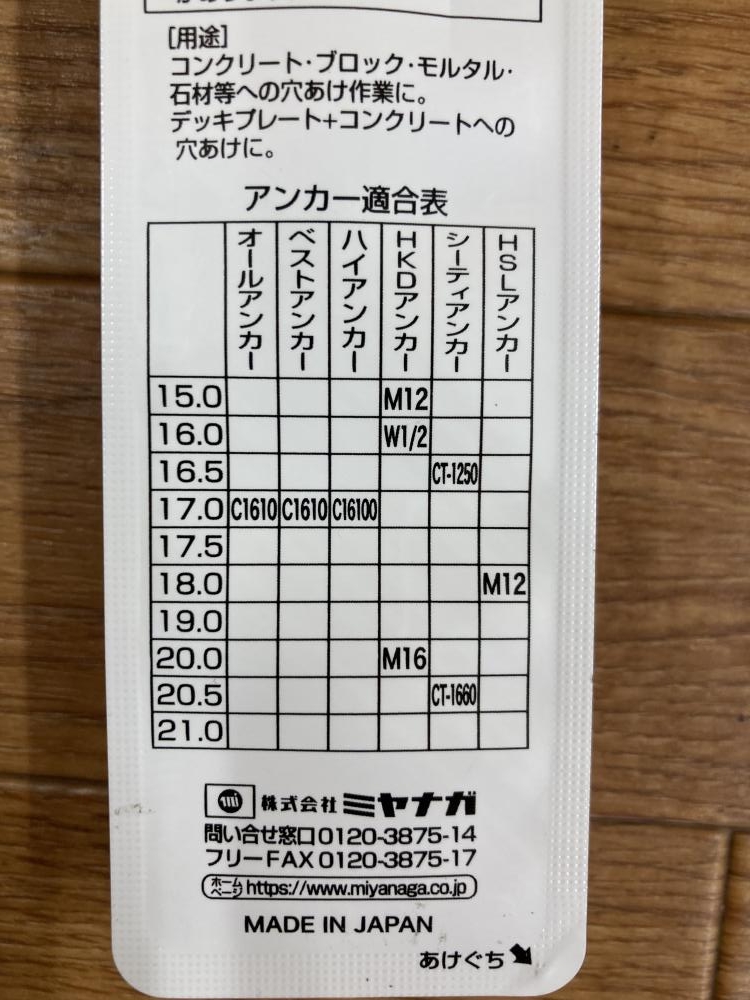 [用途]
コンクリート・ブロック・モルタル・
石材等への穴あけ作業に。
デッキプレート+コンクリートへの
穴あけに。
アンカー適合表
オールアンカー ベストアンカー ハイアンカー HKDアンカー シーティアンカー HSLアンカー
15.0 M12
16.0 W1/2
16.5 CT-1250
17.0 C1610 C1610 C16100
17.5
18.0 M12
19.0
20.0 M16
20.5 CT-1660
21.0
株式会社 ミヤナガ
問い合せ窓口0120-3875-14
フリーFAX0120-3875-17
ホームページ https://www.miyanaga.co.jp
MADE IN JAPAN
あけぐち